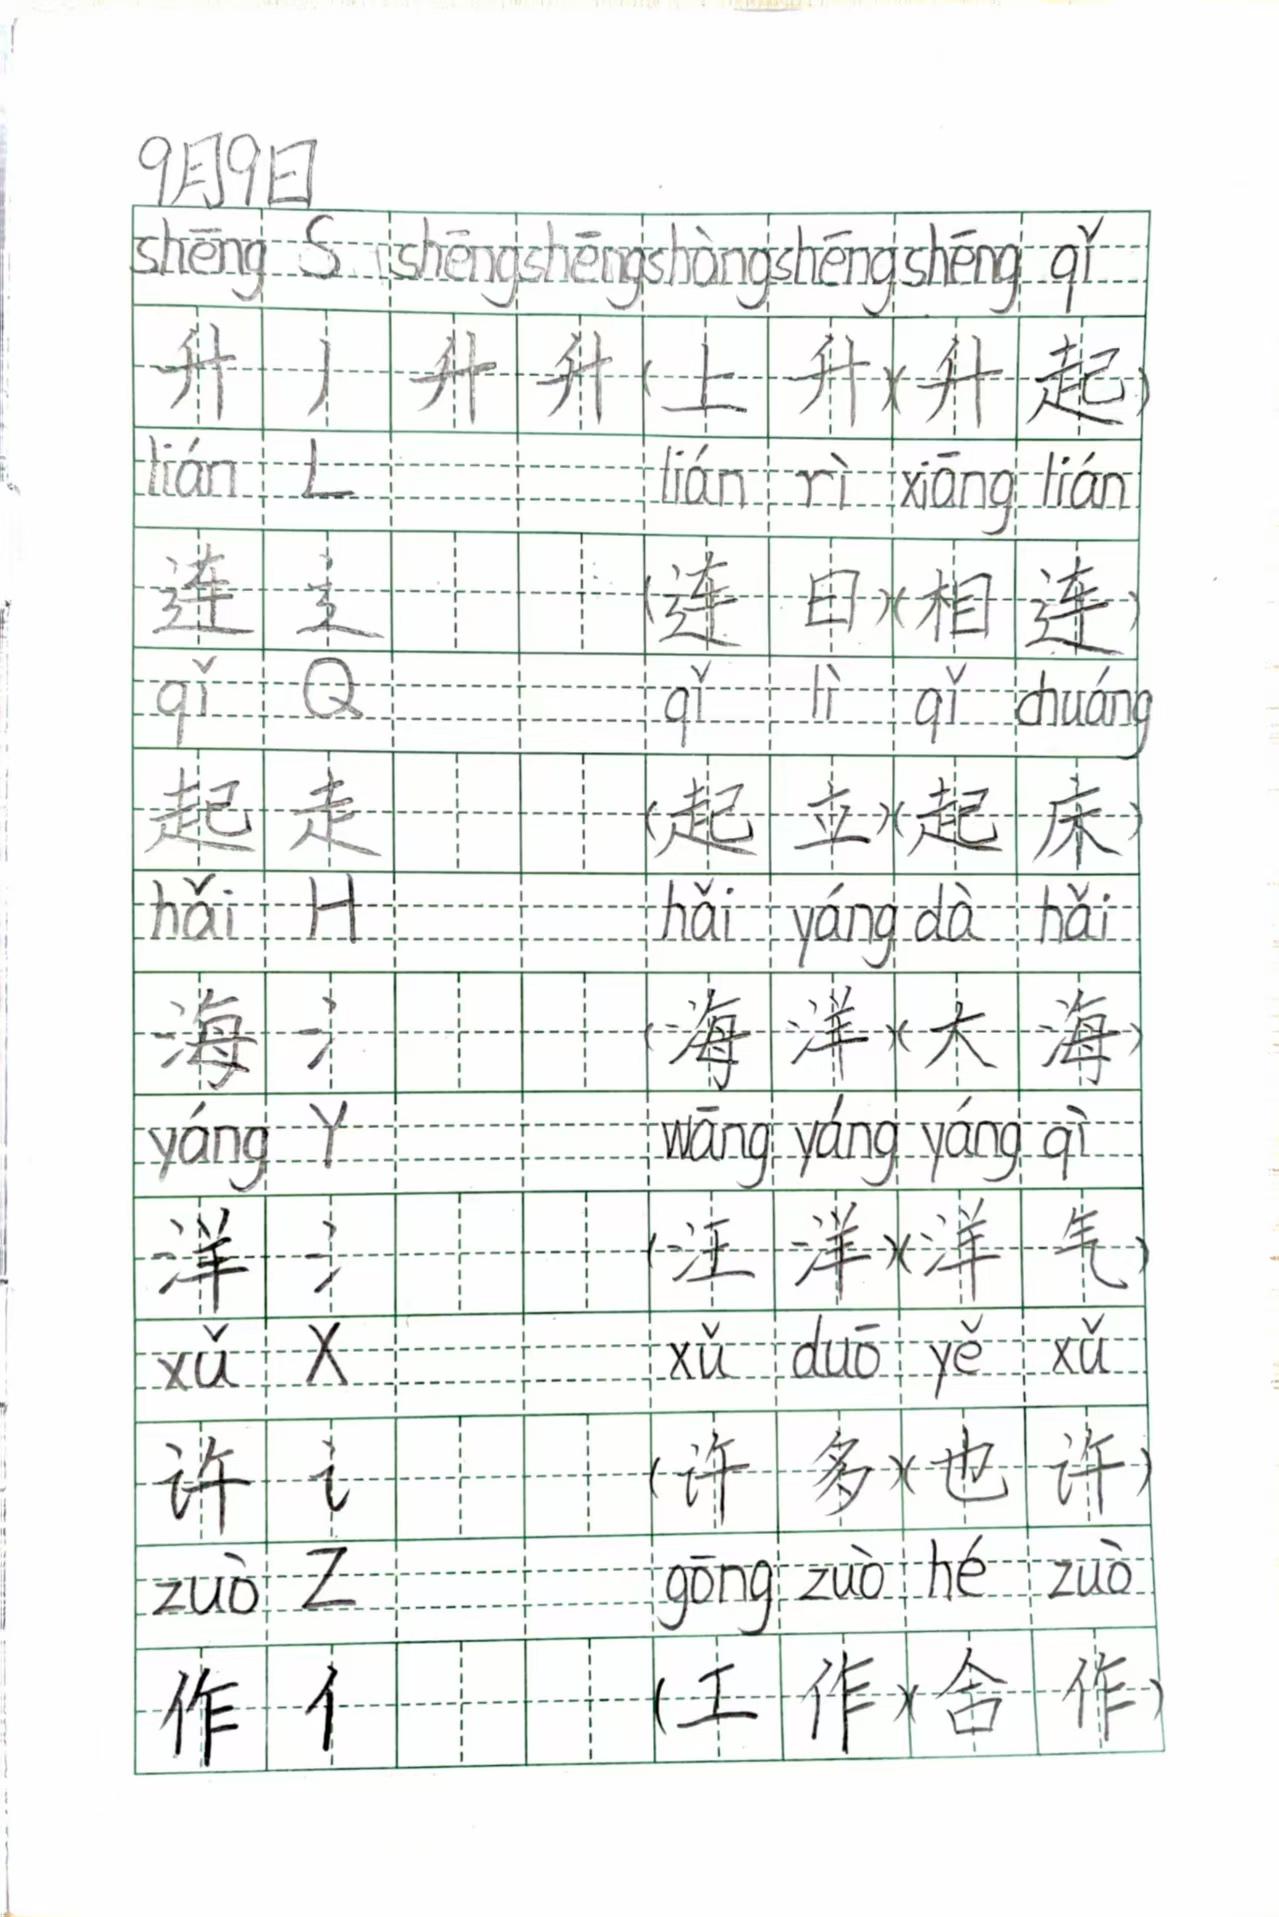 9月9日
shēng S shēng shēng shàng shēng shēng qǐ
升 丿 升 升 (上 升)(升 起)
lián L lián rì xiāng lián
连 辶 (连 日)(相 连)
qǐ Q qǐ lì qǐ chuáng
起 走 (起 立)(起 床)
hǎi H hǎi yáng dà hǎi
海 氵 (海 洋)(大 海)
yáng Y wāng yáng yáng qì
洋 氵 (汪 洋)(洋 气)
xǔ X xǔ duō yě xǔ
许 讠 (许 多)(也 许)
zuò Z gōng zuò hé zuò
作 亻 (工 作)(合 作)